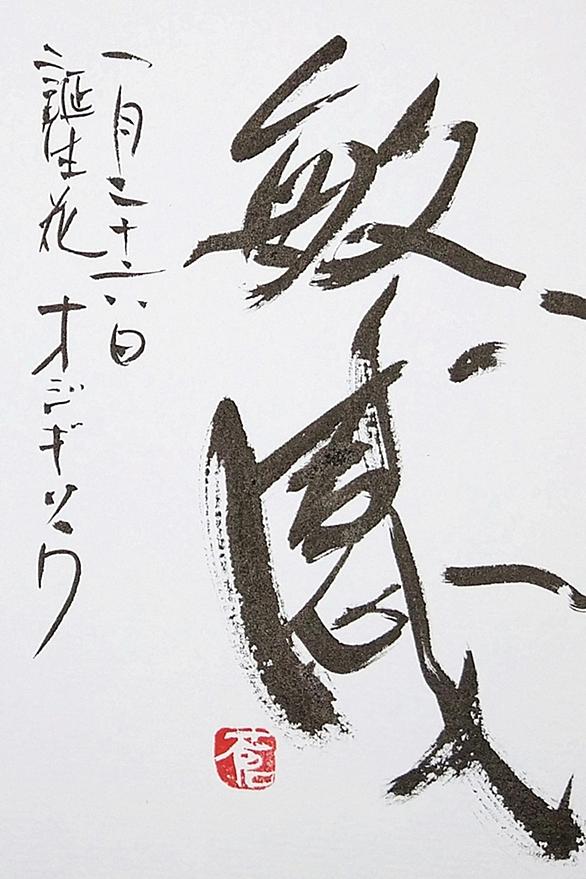 敏感
一月二十六日
誕生花 オジギソウ